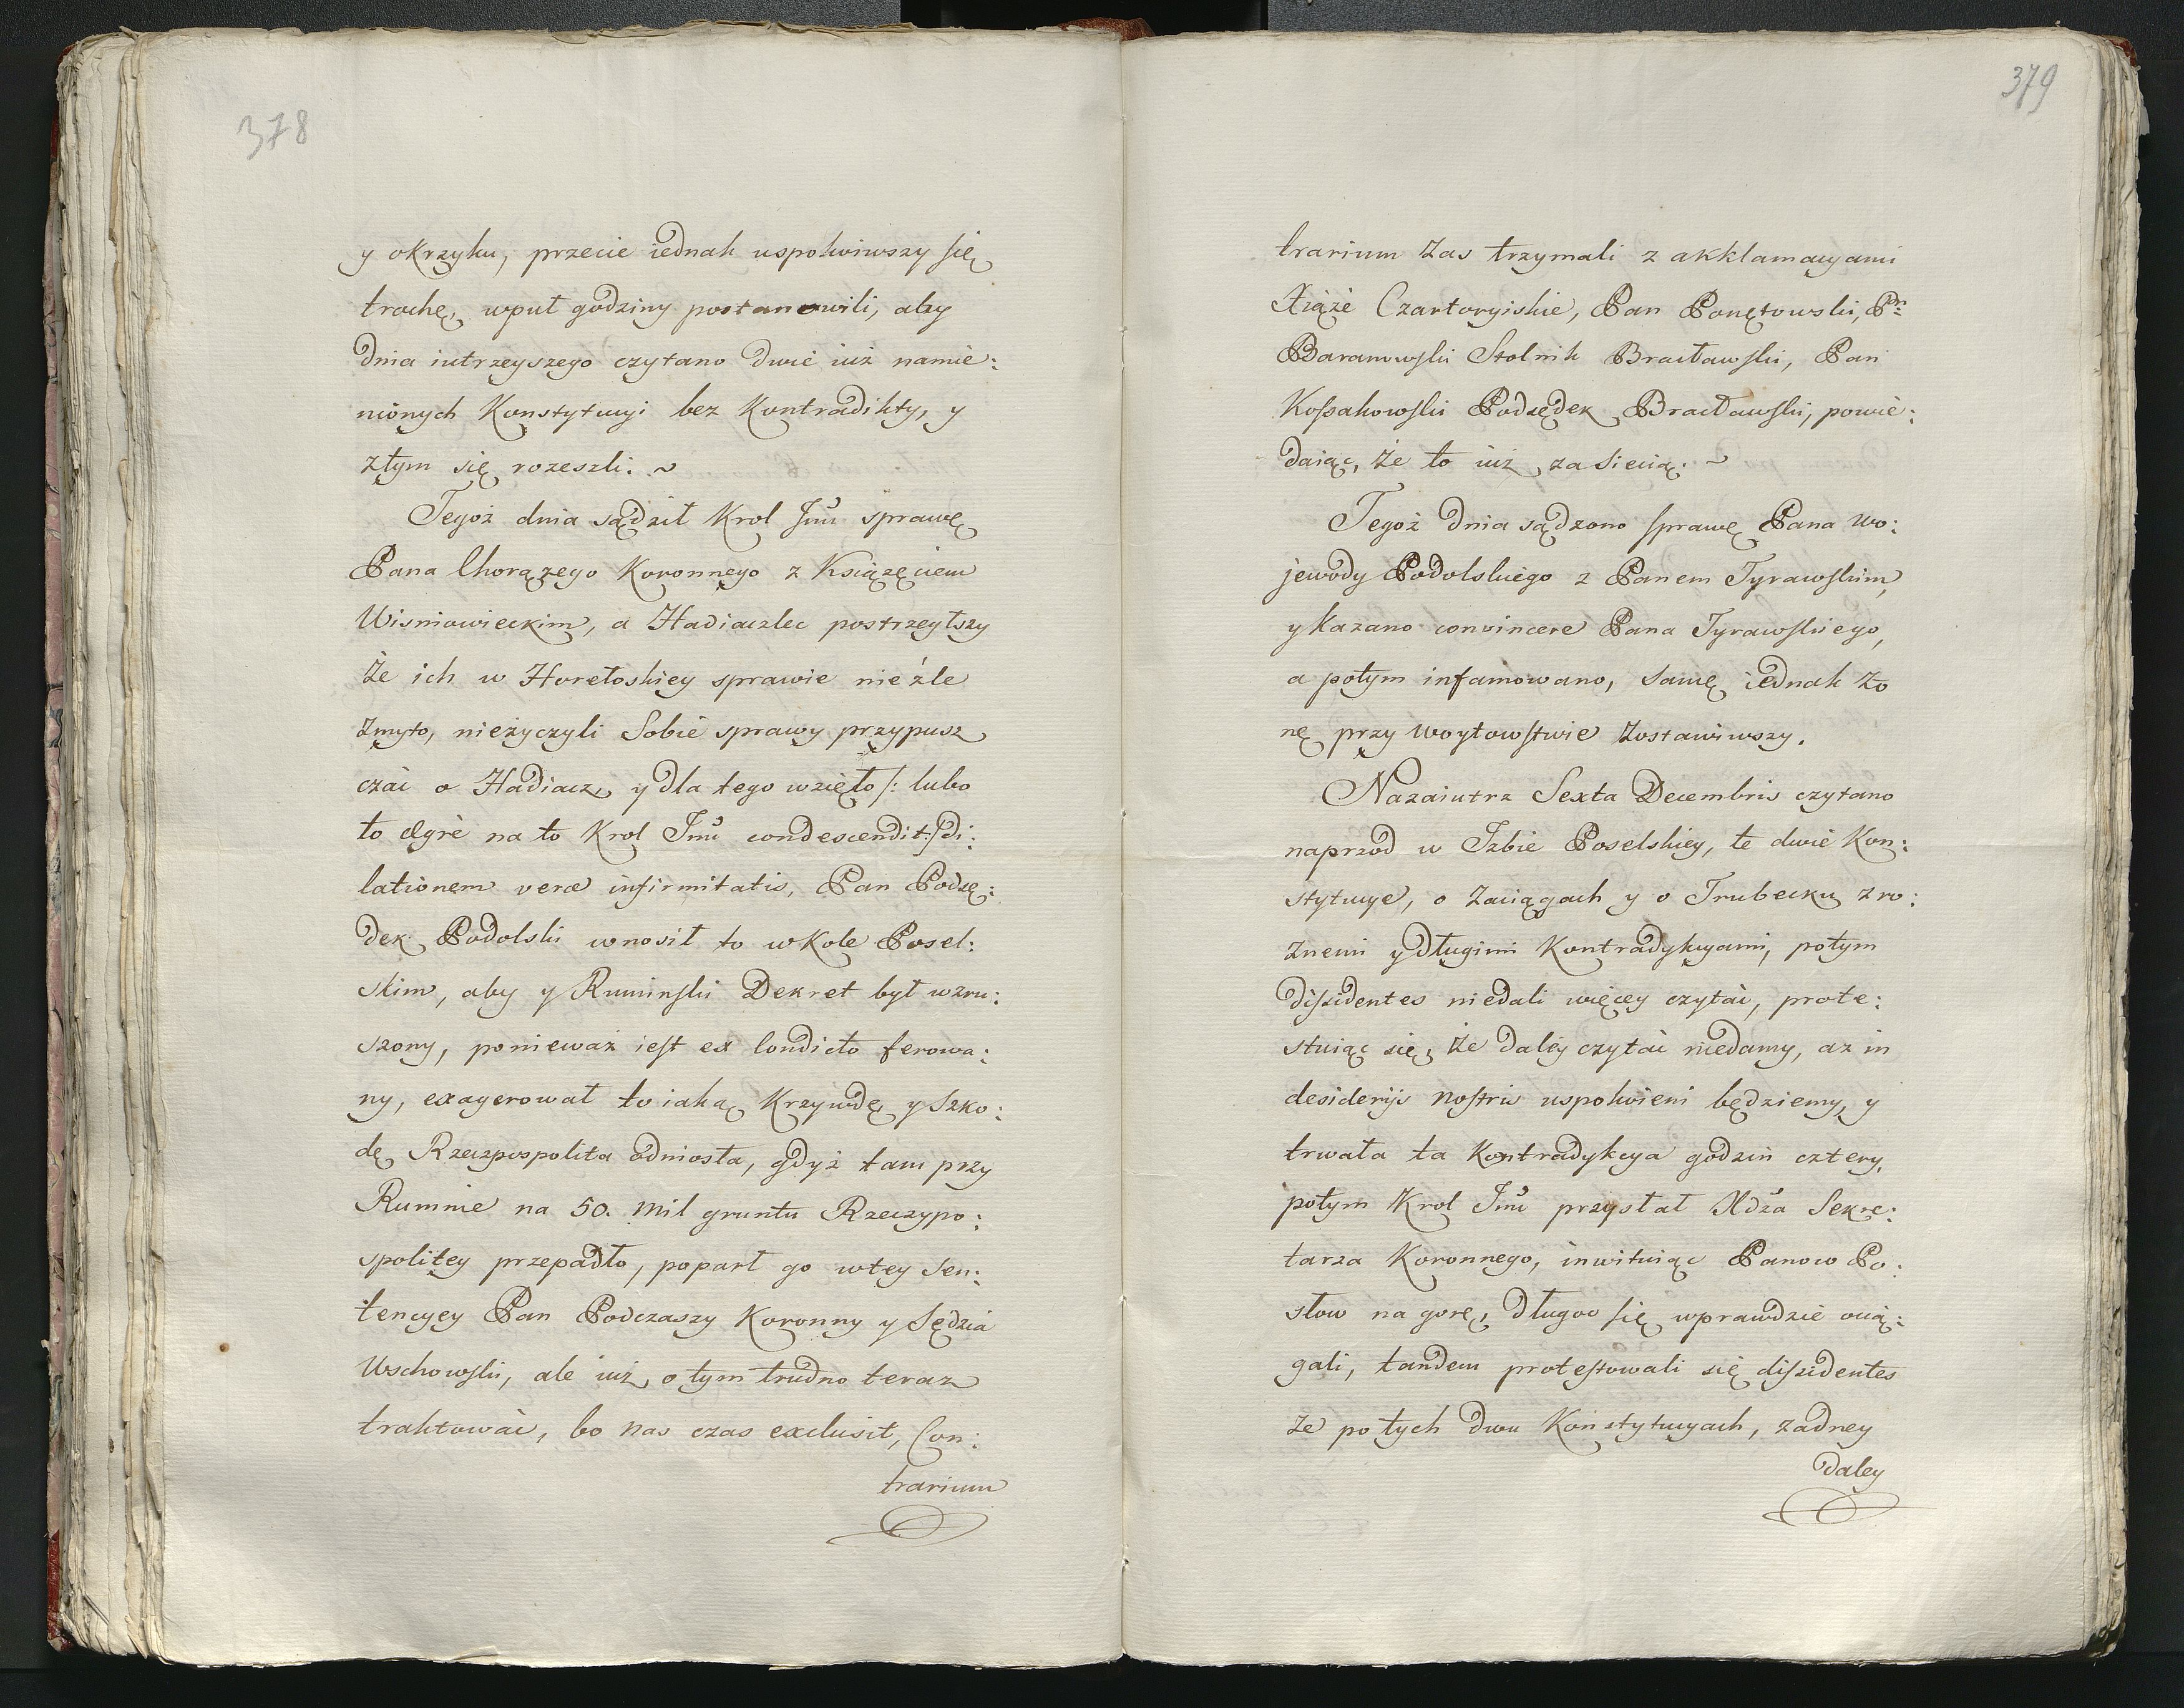 378
y okrzyku, przecie iednak uspokoiwszy się
trochę, wpuł godziny postanowili, aby
dnia iutrzeyszego czytano dwie iuż namie:
nionych Konstytucyi bez Kontradikty, y
ztym się rozeszli. ~
Tegoż dnia sądził Krol Jmć sprawę
Pana Chorązego Koronnego z Książęciem
Wisniowieckim, a Hadiaczlec postrzegłszy
że ich w Horełoskiey sprawie nieźle
zmyto, nieżyczyli Sobie sprawy przypusz
czać o Hadiacz, y dla tego wzięto /: lubo
to ægrè na to Krol Jmć condescendit :/ di:
lationem veræ infirmitatis, Pan Podsę:
dek Podolski wnosił to wKole Posel:
skim, aby y Ruminski Dekret był wzru:
szony, ponieważ iest ex Condicto ferowa:
ny, exagerował to iaką Krzywdę y Szko:
dę Rzeczpospolita odniosła, gdyż tam przy
Rumnie na 50. mil gruntu Rzeczypo:
spolitey przepadło, poparł go wtey Sen:
tencyey Pan Podczaszy Koronny y Sędzia
Wschowski, ale iuż o tym trudno teraz
traktować, bo nas czas exclusit, Con:
trarium
379
trarium zas trzymali z akklamacyami
Xiąże Czartoryiskie, Pan Ponętowski, Pn
Baranowski Stolnik Bracławski, Pan
Kossakowski Podsędek Bracławski, powie:
daiąc, że to iuż za Siecią. ~
Tegoż dnia sądzono sprawę Pana Wo:
jewody Podolskiego z Panem Tyrawskim,
y kazano convincere Pana Tyrawskiego,
a potym infamowano, samę iednak żo
nę przy Woytowstwie zostawiwszy.
Nazaiutrz Sexta Decembris czytano
naprzod w Izbie Poselskiey, te dwie Kon:
stytucye, o Zaciągach y o Trubecku z ro:
znemi y długimi Kontradykcyami, potym
dissidentes niedali więcey czytać, prote:
stuiąc się, że daley czytać niedamy, az in
desiderijs nostris uspokoieni będziemy, y
trwała ta Kontradykcya godzin cztery,
potym Krol Jmć przysłał Xdza Sekre:
tarza Koronnego, inwituiąc Panow Po:
słow na gorę, długoo się wprawdzie ocią:
gali, tandem protestowali się dissidentes
że po tych dwu Konstytucyach, żadney
daley